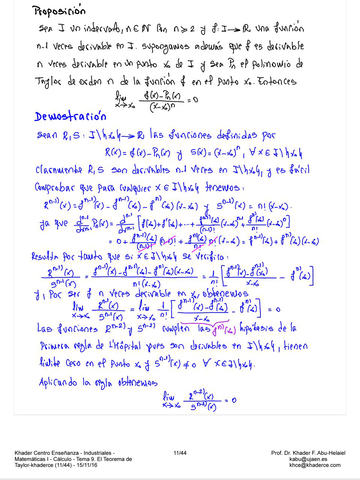 Proposición
Sea I un intervalo, n∈ℕ con n≥2 y f: I→ℝ una función
n-1 veces derivable en I. Supongamos además que f es derivable
n veces derivable en un punto x₀ de I y sea Pₙ el polinomio de
Taylor de orden n de la función f en el punto x₀. Entonces
lim x→x₀ (f(x)-Pₙ(x))/(x-x₀)ⁿ = 0
Demostración
Sean R,S: I\{x₀}→ℝ las funciones definidas por
R(x)=f(x)-Pₙ(x) y S(x)=(x-x₀)ⁿ, ∀x∈I\{x₀}
Claramente R,S son derivables n-1 veces en I\{x₀}, y es fácil
comprobar que para cualquier x∈I\{x₀} tenemos:
R⁽ⁿ⁻¹⁾(x)=f⁽ⁿ⁻¹⁾(x)-f⁽ⁿ⁻¹⁾(x₀)-f⁽ⁿ⁾(x₀)(x-x₀) y S⁽ⁿ⁻¹⁾(x)=n!(x-x₀).
ya que
Resulta por tanto que si x∈I\{x₀} se verifica:
R⁽ⁿ⁻¹⁾(x)/S⁽ⁿ⁻¹⁾(x) = (f⁽ⁿ⁻¹⁾(x)-f⁽ⁿ⁻¹⁾(x₀)-f⁽ⁿ⁾(x₀)(x-x₀))/(n!(x-x₀)) = 1/n! [(f⁽ⁿ⁻¹⁾(x)-f⁽ⁿ⁻¹⁾(x₀))/(x-x₀) - f⁽ⁿ⁾(x₀)]
y, por ser f n veces derivable en x₀ obtenemos
Las funciones R⁽ⁿ⁻²⁾ y S⁽ⁿ⁻²⁾ cumplen las hipótesis de la
primera regla de L'Hôpital pues son derivables en I\{x₀}, tienen
límite cero en el punto x₀ y S⁽ⁿ⁻¹⁾(x)≠0 ∀x∈I\{x₀}
Aplicando la regla obtenemos
lim x→x₀ R⁽ⁿ⁻²⁾(x)/S⁽ⁿ⁻²⁾(x) = 0
Khader Centro Enseñanza - Industriales -
Matemáticas I - Cálculo - Tema 9. El Teorema de
Taylor-khaderce (11/44) - 15/11/16
11/44
Prof. Dr. Khader F. Abu-Helaiel
kabu@ujaen.es
khce@khaderce.com